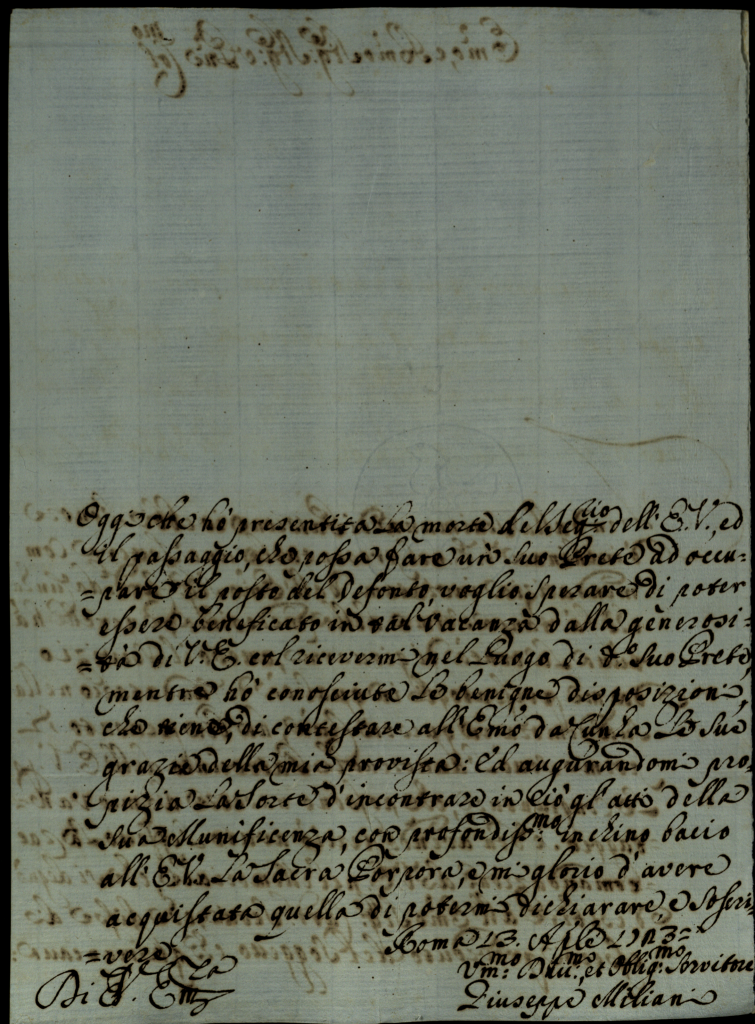 Oggi che hò presentita La morte del Seg.rio dell' E. V., ed
il passaggio, che possa fare un suo Prete ad occu-
=pare il posto del Defonto, voglio sperare di poter
essere beneficato in tal vacanza dalla generosi-
=tà di V. E. col ricevermi nel Luogo di d.o suo Prete,
mentre hò conosciute Le benigne disposizioni,
che tiene, di contestare all' Emo da Cunha Le sue
grazie della mia provista: Ed augurandomi pro-
pizia La Sorte d'incontrare in ciò gl' atti della
sua Munificenza, con profondiss.mo inchino bacio
all' E. V. La Sacra Porpora, e mi glorio d' avere
acquistata quella di potermi dichiarare, e soscri-
=vere
Roma 13. Aple 1723=
Di V. Em.za
Vm.mo Dev.mo, et Oblig.mo Servitore
Giuseppe Miliani